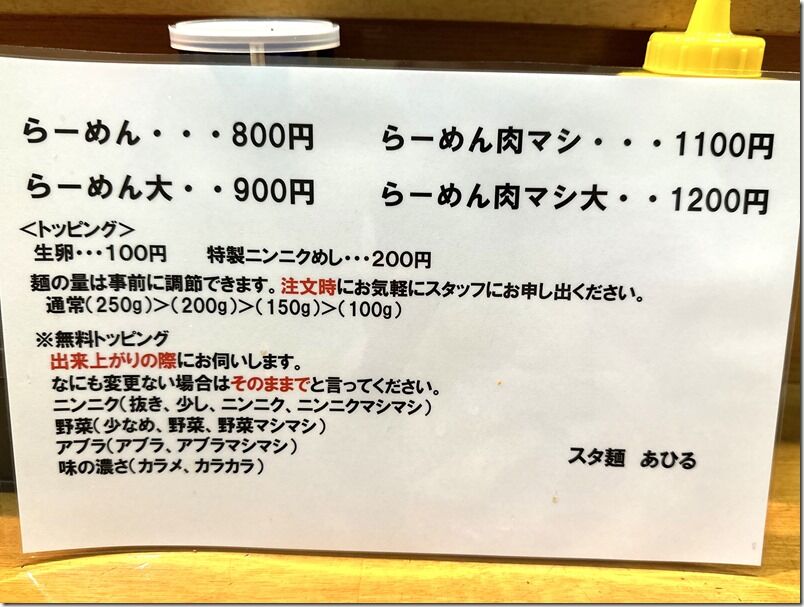 らーめん・・・800円　らーめん肉マシ・・・1100円
らーめん大・・900円　らーめん肉マシ大・・1200円
＜トッピング＞
生卵・・・100円　特製ニンニクめし・・・200円
麺の量は事前に調節できます。注文時にお気軽にスタッフにお申し出ください。
通常（250g）＞（200g）＞（150g）＞（100g）
※無料トッピング
出来上がりの際にお伺いします。
なにも変更ない場合はそのままでと言ってください。
ニンニク（抜き、少し、ニンニク、ニンニクマシマシ）
野菜（少なめ、野菜、野菜マシマシ）
アブラ（アブラ、アブラマシマシ）
味の濃さ（カラメ、カラカラ）
スタ麺　あひる